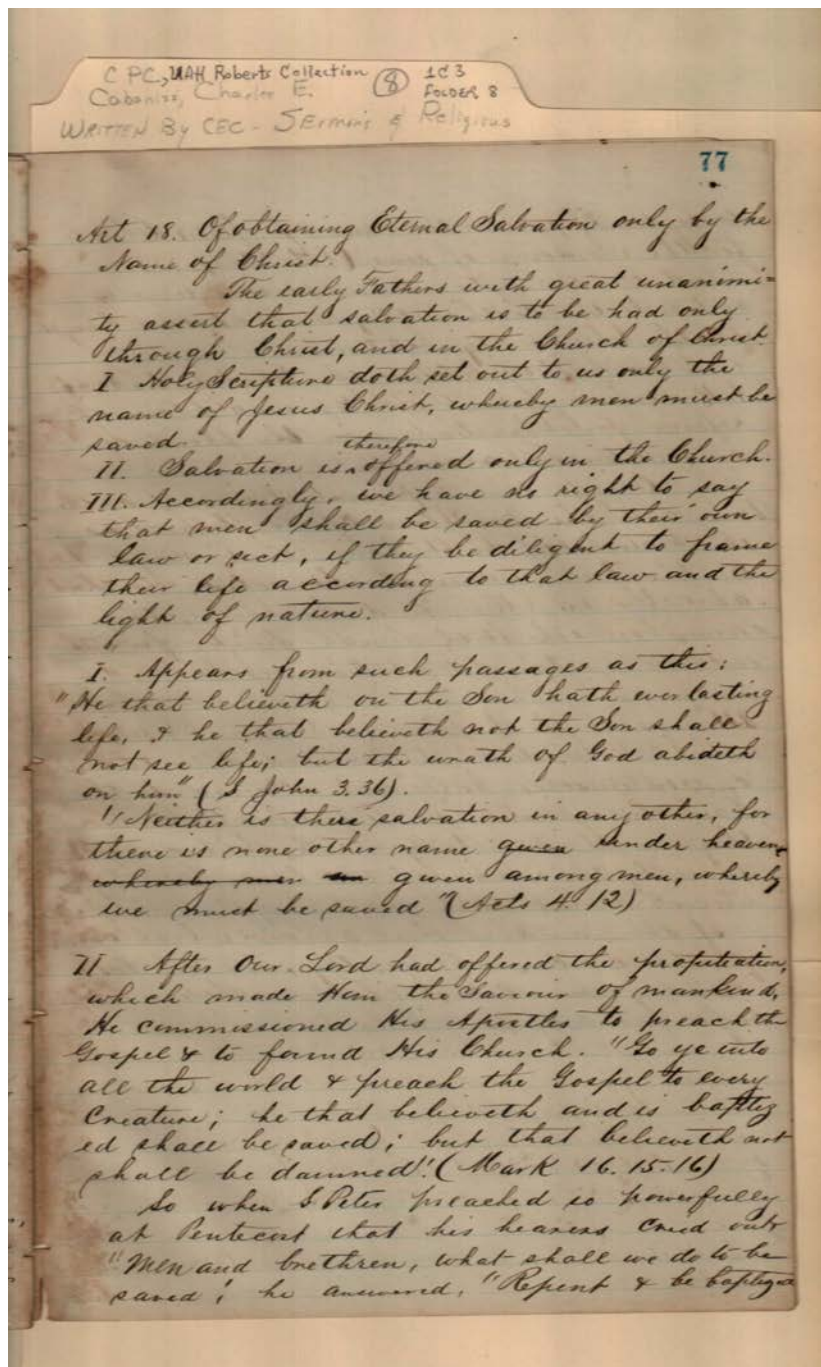 C PC, UAH Roberts Collection (8) 1C3
Cabaniss, Charles E. FOLDER 8
WRITTEN By CEC - SErmons & Religious
77
Art 18. Of obtaining Eternal Salvation only by the
Name of Christ.
The early Fathers with great unanimi=
ty assert that salvation is to be had only
through Christ, and in the Church of Christ.
I Holy Scripture doth set out to us only the
name of Jesus Christ, whereby men must be
saved
therefore
II. Salvation is offered only in the Church.
III. Accordingly, we have no right to say
that men shall be saved by their own
law or sect, if they be diligent to frame
their life according to that law and the
light of nature.
I. Appears from such passages as this:
"He that believeth on the Son hath everlasting
life, & he that believeth not the Son shall
not see life; but the wrath of God abideth
on him" (S John 3.36).
"Neither is there salvation in any other, for
there is none other name given under heaven
whereby men given among men, whereby
we must be saved" (Acts 4.12)
II After Our Lord had offered the propitiation,
which made Him the Saviour of mankind,
He commissioned His Apostles to preach the
Gospel & to found His Church. "Go ye into
all the world & preach the Gospel to every
Creature; he that believeth and is baptiz
ed shall be saved; but that believeth not
shall be damned". (Mark 16.15.16)
So when S Peter preached so powerfully
at Pentecost that his hearers cried out
"Men and brethren, what shall we do to be
saved", he answered, "Repent & be baptized